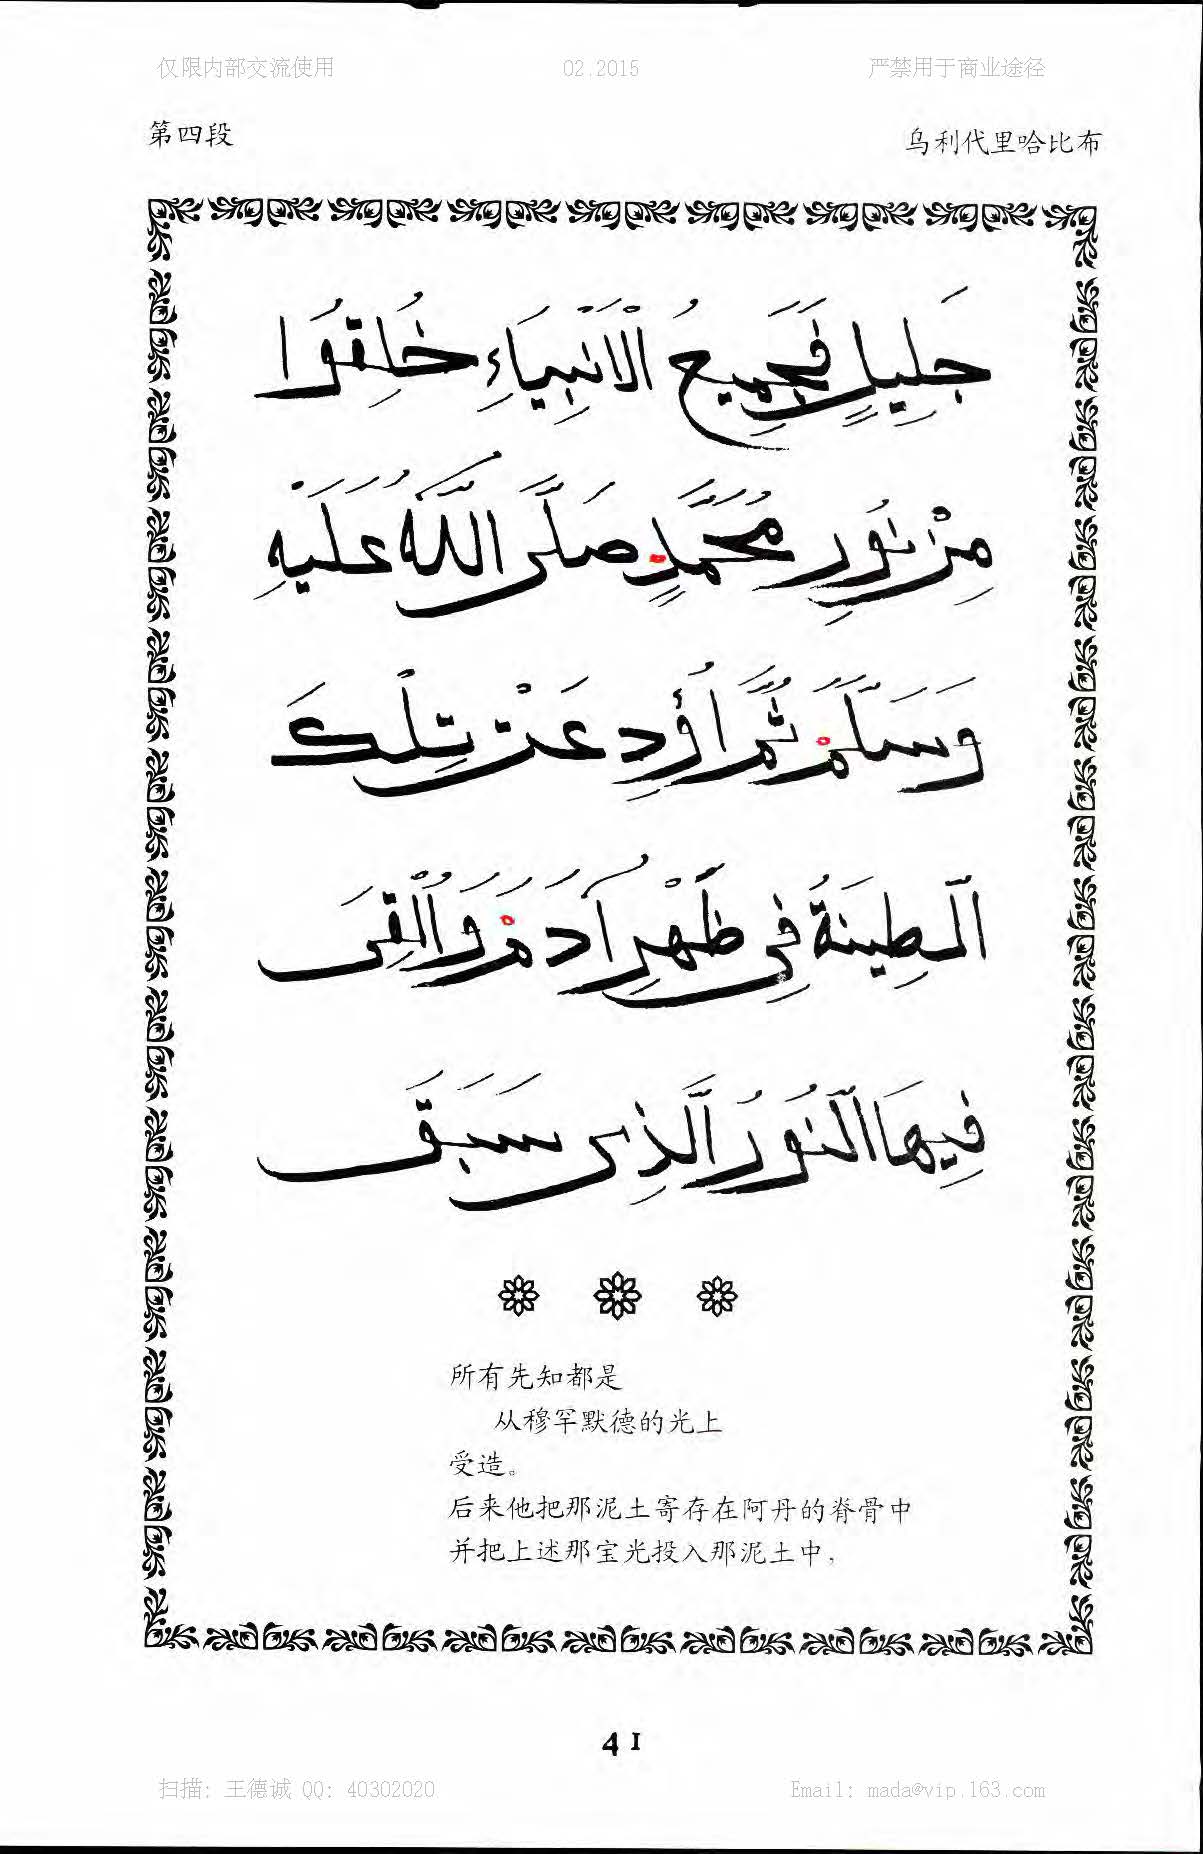 仅限内部交流使用 02.2015 严禁用于商业途径
第四段 乌利代里哈比布
جَلِيلٍ فَجَمِيعُ الْاَنْبِيَاءِ خُلِقُوا
مِنْ نُورِ مُحَمَّدٍ صَلَّى اللَّهُ عَلَيْهِ
وَسَلَّمَ ثُمَّ اُؤدِعَتْ تِلْكَ
الطِّينَةُ فِى ظَهْرِ اٰدَمَ وَاُلْقِىَ
فِيهَا النُّورُ الَّذِى سَبَقَ
所有先知都是
从穆罕默德的光上
受造。
后来他把那泥土寄存在阿丹的脊骨中
并把上述那宝光投入那泥土中，
41
扫描: 王德诚 QQ: 40302020 Email: mada@vip.163.com